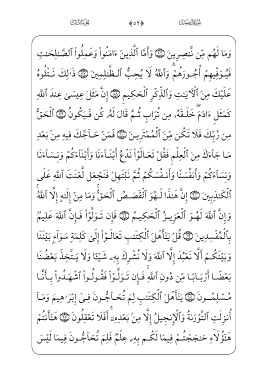 وَمَا لَهُم مِّن نَّٰصِرِينَ ۝ وَأَمَّا ٱلَّذِينَ ءَامَنُوا۟ وَعَمِلُوا۟ ٱلصَّٰلِحَٰتِ
فَيُوَفِّيهِمْ أُجُورَهُمْ ۗ وَٱللَّهُ لَا يُحِبُّ ٱلظَّٰلِمِينَ ۝ ذَٰلِكَ نَتْلُوهُ
عَلَيْكَ مِنَ ٱلْءَايَٰتِ وَٱلذِّكْرِ ٱلْحَكِيمِ ۝ إِنَّ مَثَلَ عِيسَىٰ عِندَ ٱللَّهِ
كَمَثَلِ ءَادَمَ ۖ خَلَقَهُۥ مِن تُرَابٍ ثُمَّ قَالَ لَهُۥ كُن فَيَكُونُ ۝ ٱلْحَقُّ
مِن رَّبِّكَ فَلَا تَكُن مِّنَ ٱلْمُمْتَرِينَ ۝ فَمَنْ حَآجَّكَ فِيهِ مِنۢ بَعْدِ
مَا جَآءَكَ مِنَ ٱلْعِلْمِ فَقُلْ تَعَالَوْا۟ نَدْعُ أَبْنَآءَنَا وَأَبْنَآءَكُمْ وَنِسَآءَنَا
وَنِسَآءَكُمْ وَأَنفُسَنَا وَأَنفُسَكُمْ ثُمَّ نَبْتَهِلْ فَنَجْعَل لَّعْنَتَ ٱللَّهِ عَلَى
ٱلْكَٰذِبِينَ ۝ إِنَّ هَٰذَا لَهُوَ ٱلْقَصَصُ ٱلْحَقُّ ۚ وَمَا مِنْ إِلَٰهٍ إِلَّا ٱللَّهُ ۚ
وَإِنَّ ٱللَّهَ لَهُوَ ٱلْعَزِيزُ ٱلْحَكِيمُ ۝ فَإِن تَوَلَّوْا۟ فَإِنَّ ٱللَّهَ عَلِيمٌۢ
بِٱلْمُفْسِدِينَ ۝ قُلْ يَٰٓأَهْلَ ٱلْكِتَٰبِ تَعَالَوْا۟ إِلَىٰ كَلِمَةٍ سَوَآءٍۭ بَيْنَنَا
وَبَيْنَكُمْ أَلَّا نَعْبُدَ إِلَّا ٱللَّهَ وَلَا نُشْرِكَ بِهِۦ شَيْـًٔا وَلَا يَتَّخِذَ بَعْضُنَا
بَعْضًا أَرْبَابًا مِّن دُونِ ٱللَّهِ ۚ فَإِن تَوَلَّوْا۟ فَقُولُوا۟ ٱشْهَدُوا۟ بِأَنَّا
مُسْلِمُونَ ۝ يَٰٓأَهْلَ ٱلْكِتَٰبِ لِمَ تُحَآجُّونَ فِىٓ إِبْرَٰهِيمَ وَمَآ
أُنزِلَتِ ٱلتَّوْرَىٰةُ وَٱلْإِنجِيلُ إِلَّا مِنۢ بَعْدِهِۦٓ ۚ أَفَلَا تَعْقِلُونَ ۝ هَٰٓأَنتُمْ
هَٰٓؤُلَآءِ حَٰجَجْتُمْ فِيمَا لَكُم بِهِۦ عِلْمٌ فَلِمَ تُحَآجُّونَ فِيمَا لَيْسَ